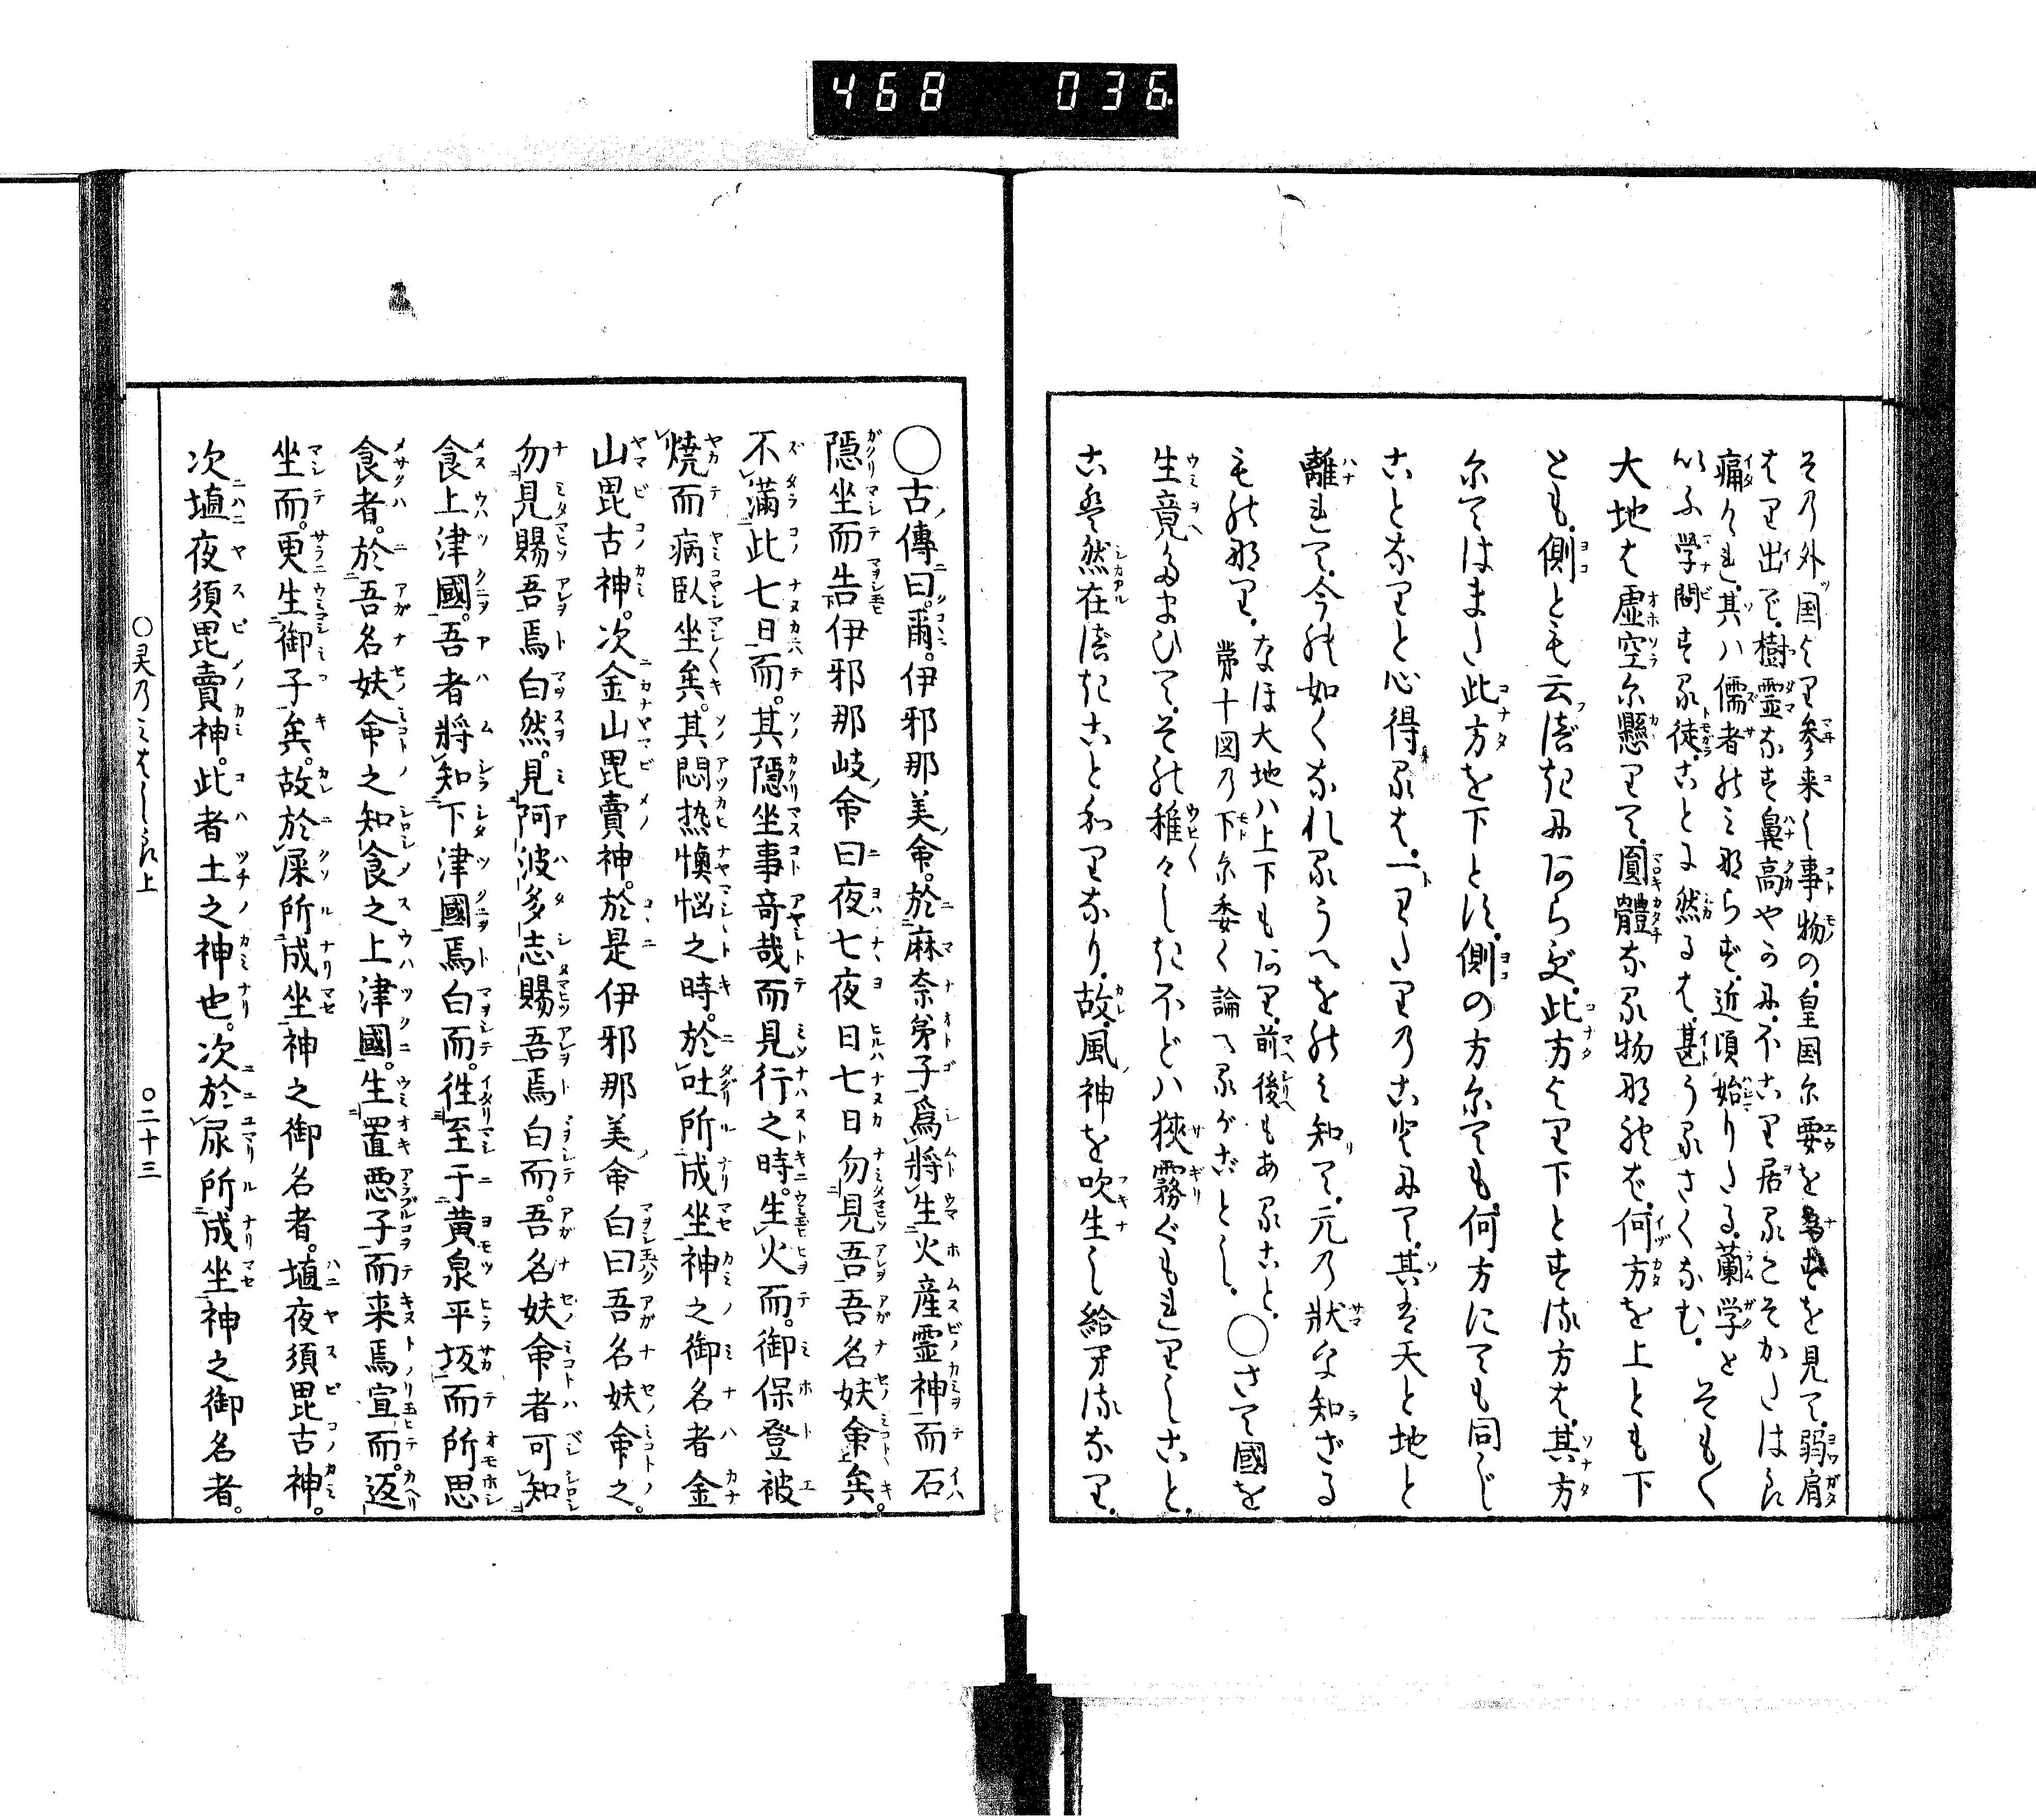 468 036
その外国より参来し事物の皇国に要を為すを見て弱肩
はり出て樹霊なす鼻高やかにほこり居るこそかたは良
痛けれ其ハ儒者のみならず近頃始りたる蘭学と
いふ学問する徒ことに然るは甚うるさくなむそもく
大地は虚空に懸りて圓體なる物なれば何方を上とも下
とも側とも云べきにあらず此方より下とする方は其方
にてはまた此方を下とし側の方にても何方にても同じ
ことなりと心得るは一わたりのことにて其は天と地と
離れて今の如くなれるうへをのみ知りて元の状を知ざる
ものなりなほ大地ハ上下もあり前後もあること
第十図の下に委く論へるがごとし〇さて國を
生竟たまひてその稚々しきほどハ狭霧ぐもれりしこと
こは然在べきことわりなり故風神を吹生し給へるなり
〇古傳曰爾伊邪那美命於麻奈弟子為將生火産霊神而石
隠坐而告伊邪那岐命曰夜七夜日七日勿見吾吾名妋命矣
不満此七日而其隠坐事奇哉而見行之時生火而御保登被
焼而病臥坐矣其悶熱懊悩之時於吐所成坐神之御名者金
山毘古神次金山毘賣神於是伊邪那美命白曰吾名妋命之
勿見賜吾焉白然見阿波多志賜吾焉白而吾名妋命者可知
食上津國吾者將知下津國焉白而徃至于黄泉平坂而所思
食者於吾名妋命之知食之上津國生置悪子而来焉宣而返
坐而更生御子矣故於屎所成坐神之御名者埴夜須毘古神
次埴夜須毘賣神此者土之神也次於尿所成坐神之御名者
〇二十三